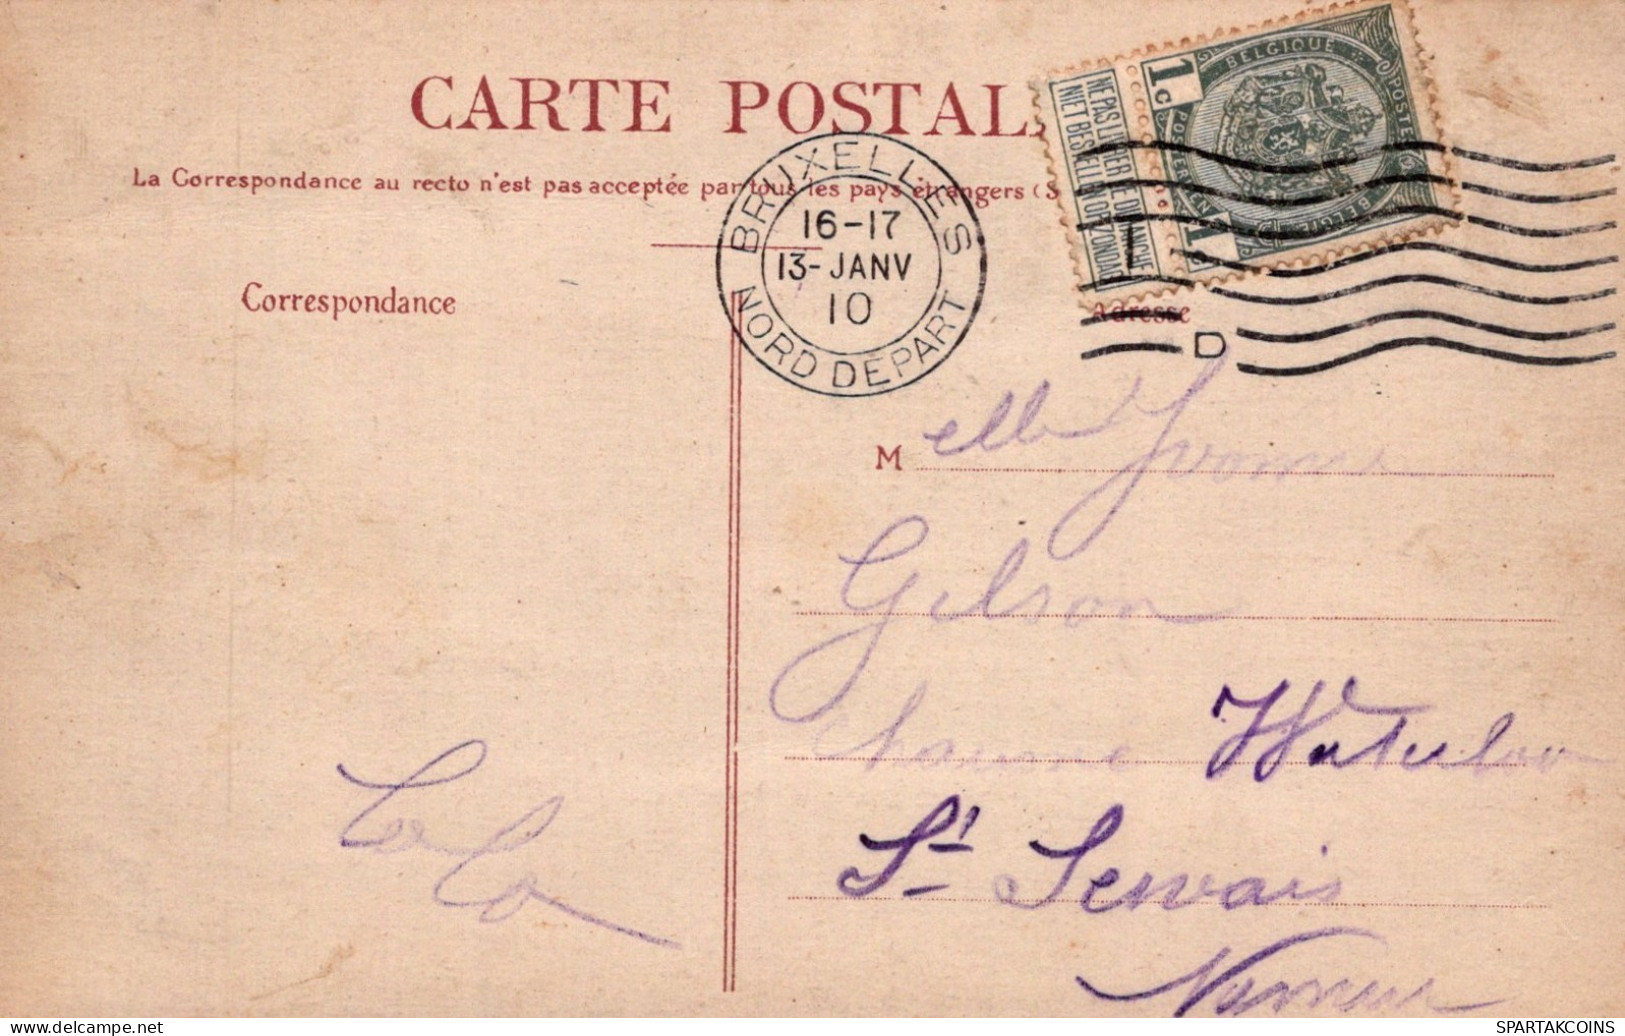 CARTE POSTALE
La Correspondance au recto n'est pas acceptée par tous les pays étrangers (S
BRUXELLES
16-17
13-JANV
10
NORD DÉPART
BELGIQUE
POSTES
1c
POSTERIJEN
BELGIË
1c
NE PAS LIVRER LE DIMANCHE
NIET BESTELLEN OP ZONDAG
D
Correspondance
Adresse
M elle Yvonne
Gilson
Waterloo
St Servais
Namur
delcampe.net
SPARTAKCOINS